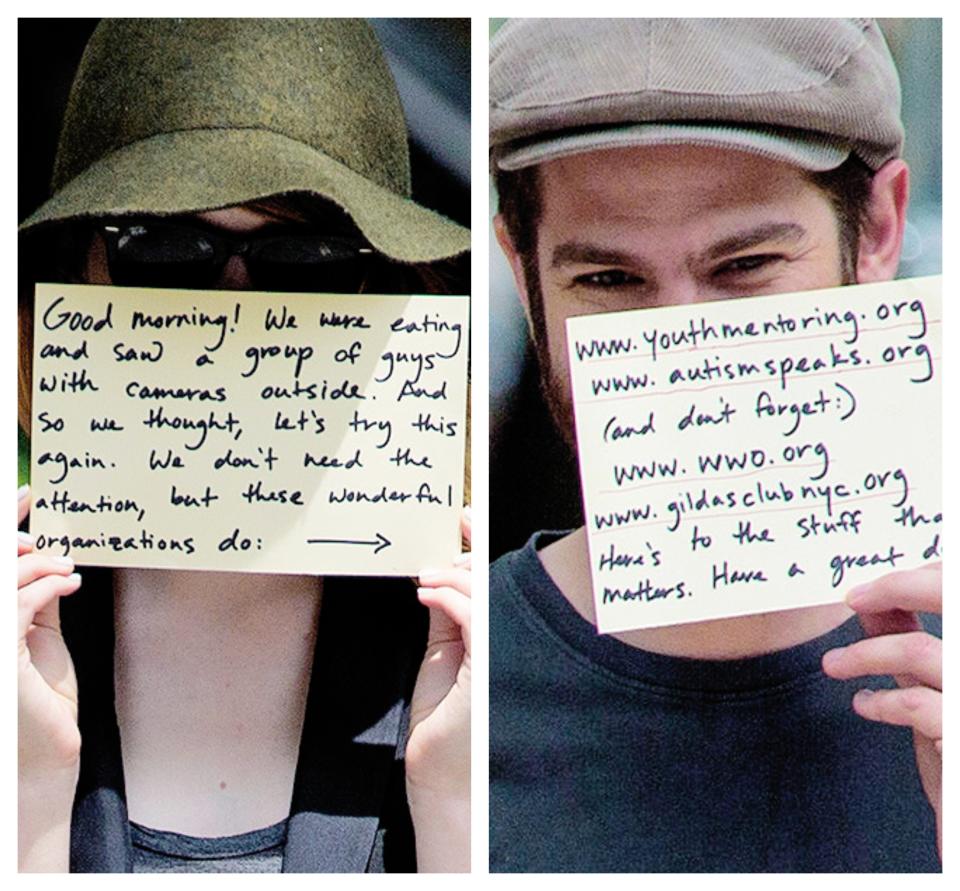 Good morning! We were eating
and saw a group of guys
with cameras outside. And
so we thought, let's try this
again. We don't need the
attention, but these wonderful
organizations do: →
www.youthmentoring.org
www.autismspeaks.org
(and don't forget:)
www.wwo.org
www.gildasclubnyc.org
Here's to the stuff tha
matters. Have a great d